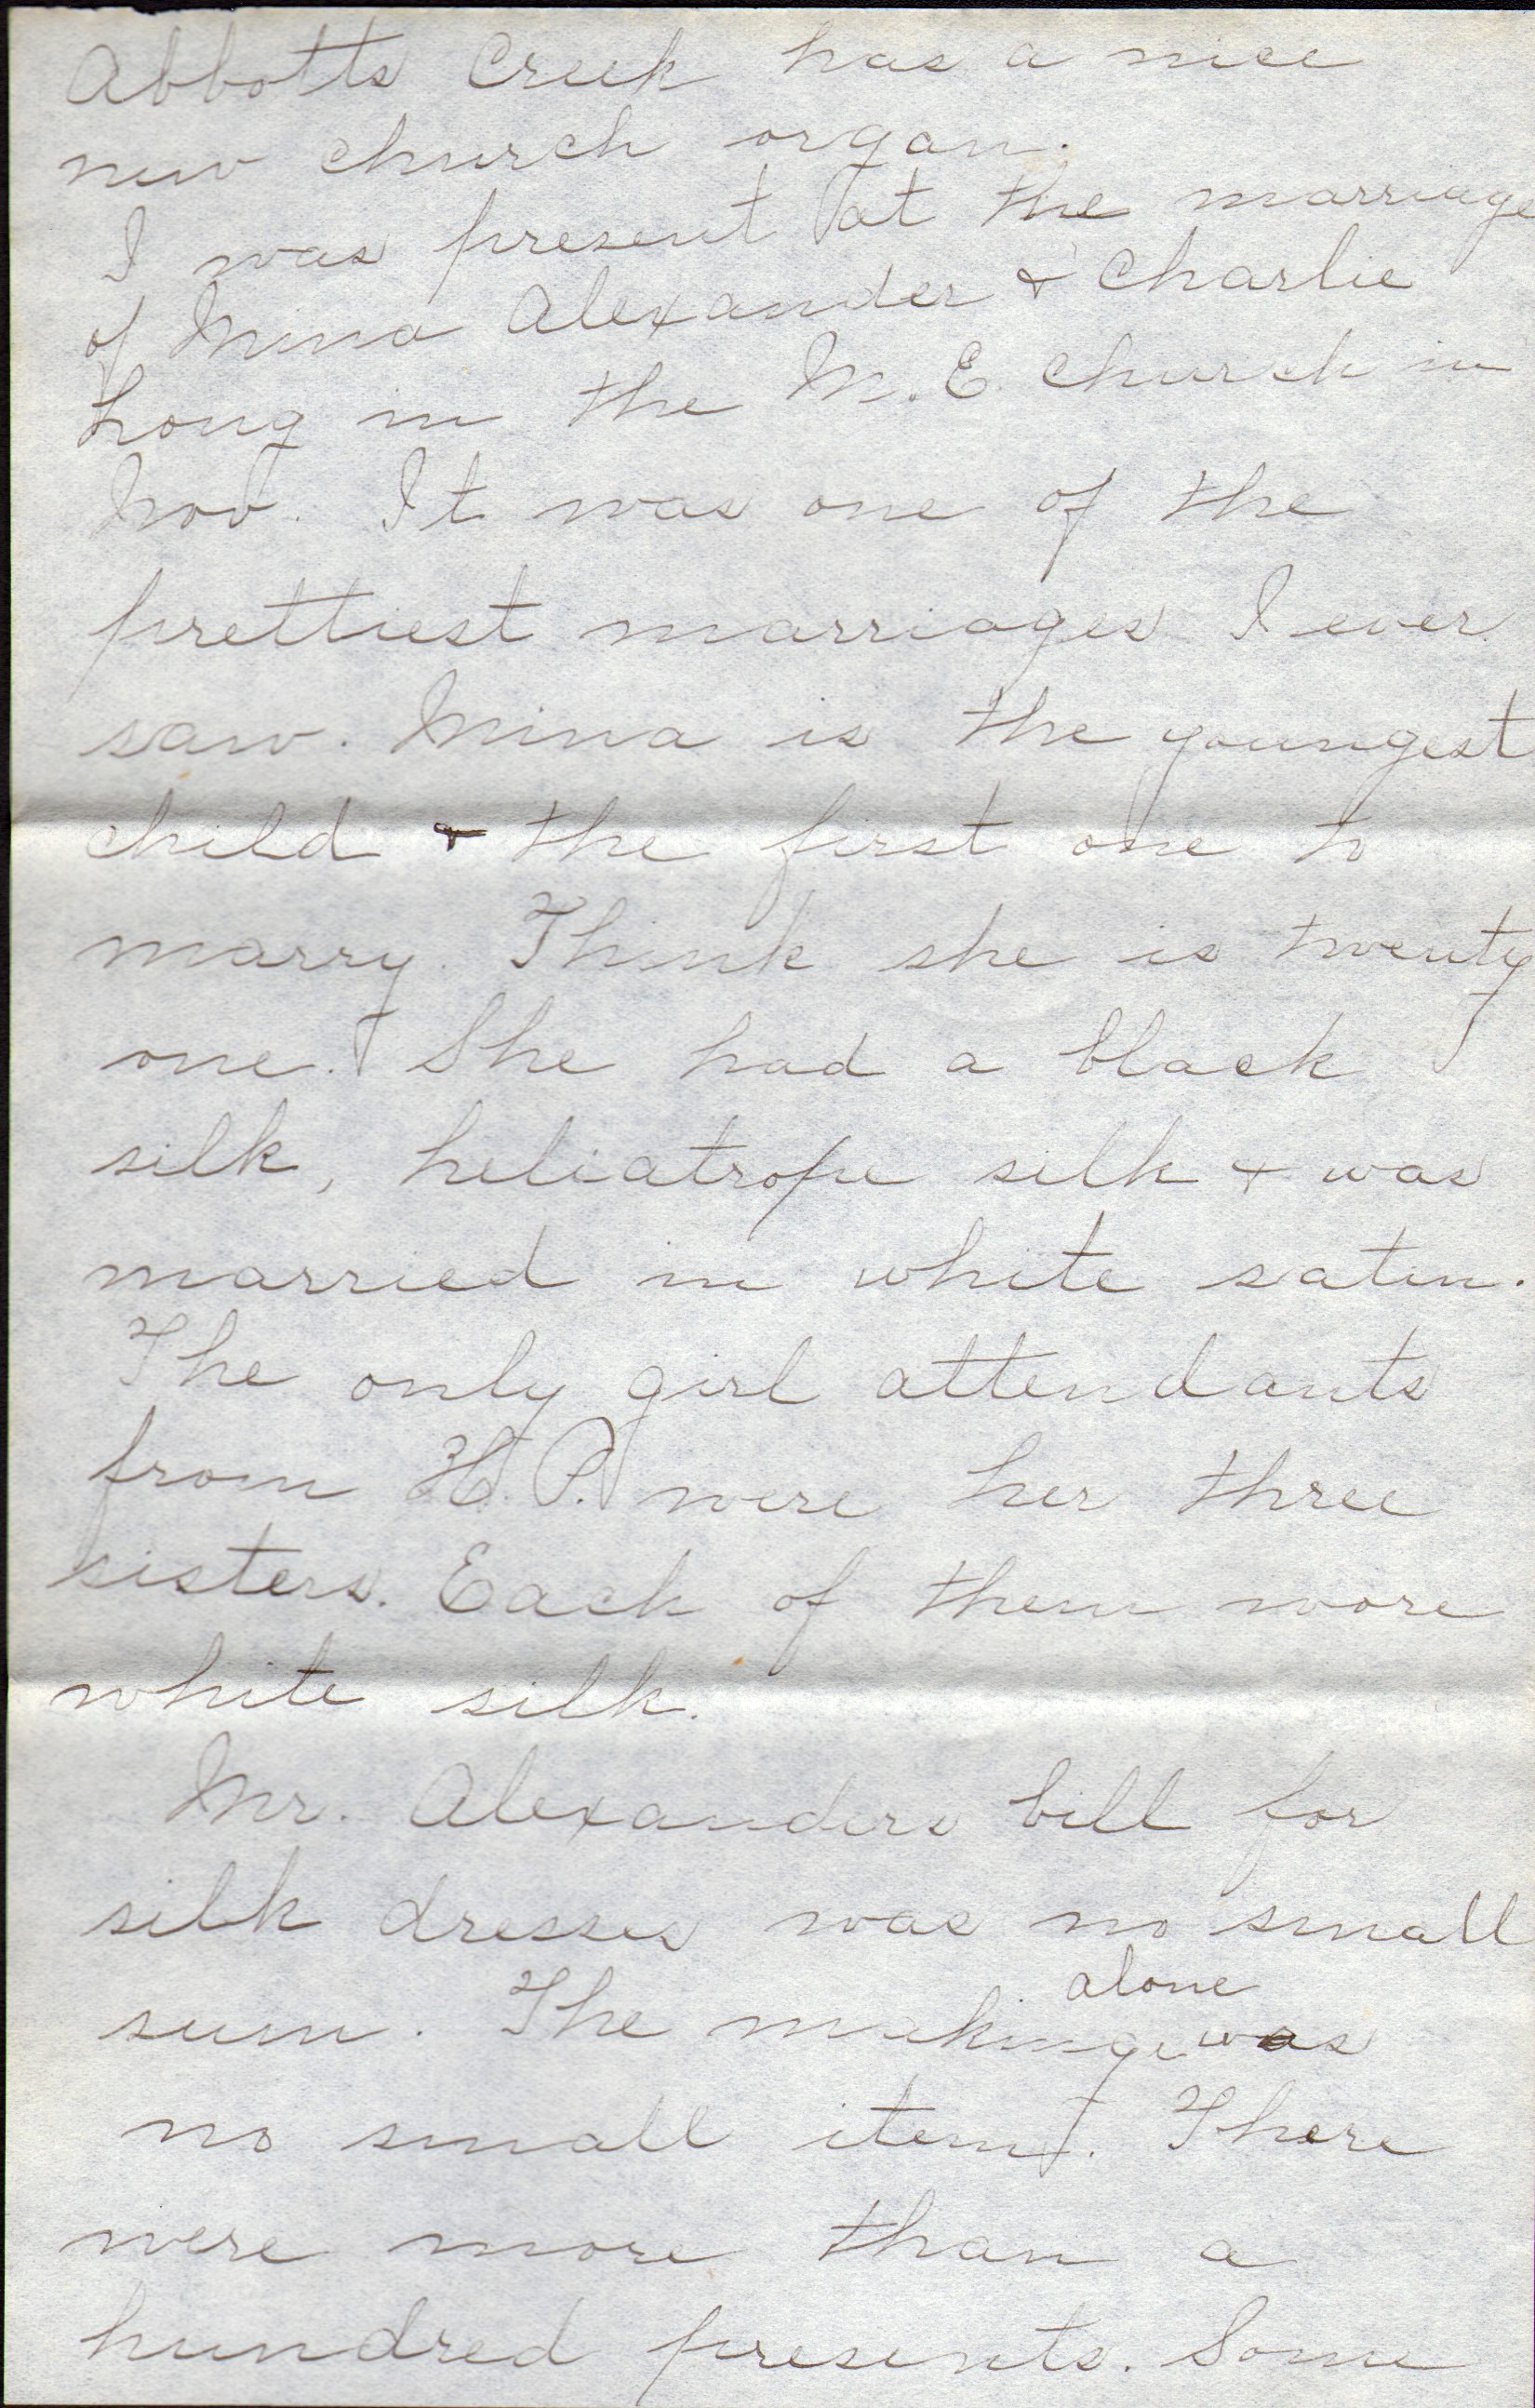 Abbotts Creek has a nice
new church organ.
I was present at the marriage
of Mina Alexander & Charlie
Long in the M. E. church in
Nov. It was one of the
prettiest marriages I ever
saw. Mina is the youngest
child & the first one to
marry. Think she is twenty
one. She had a black
silk, heliatrope silk & was
married in white satin.
The only girl attendants
from H. P. were her three
sisters. Each of them wore
white silk.
Mr. Alexanders bill for
silk dresses was no small
alone
sum. The making was
no small item. There
were more than a
hundred presents. Some